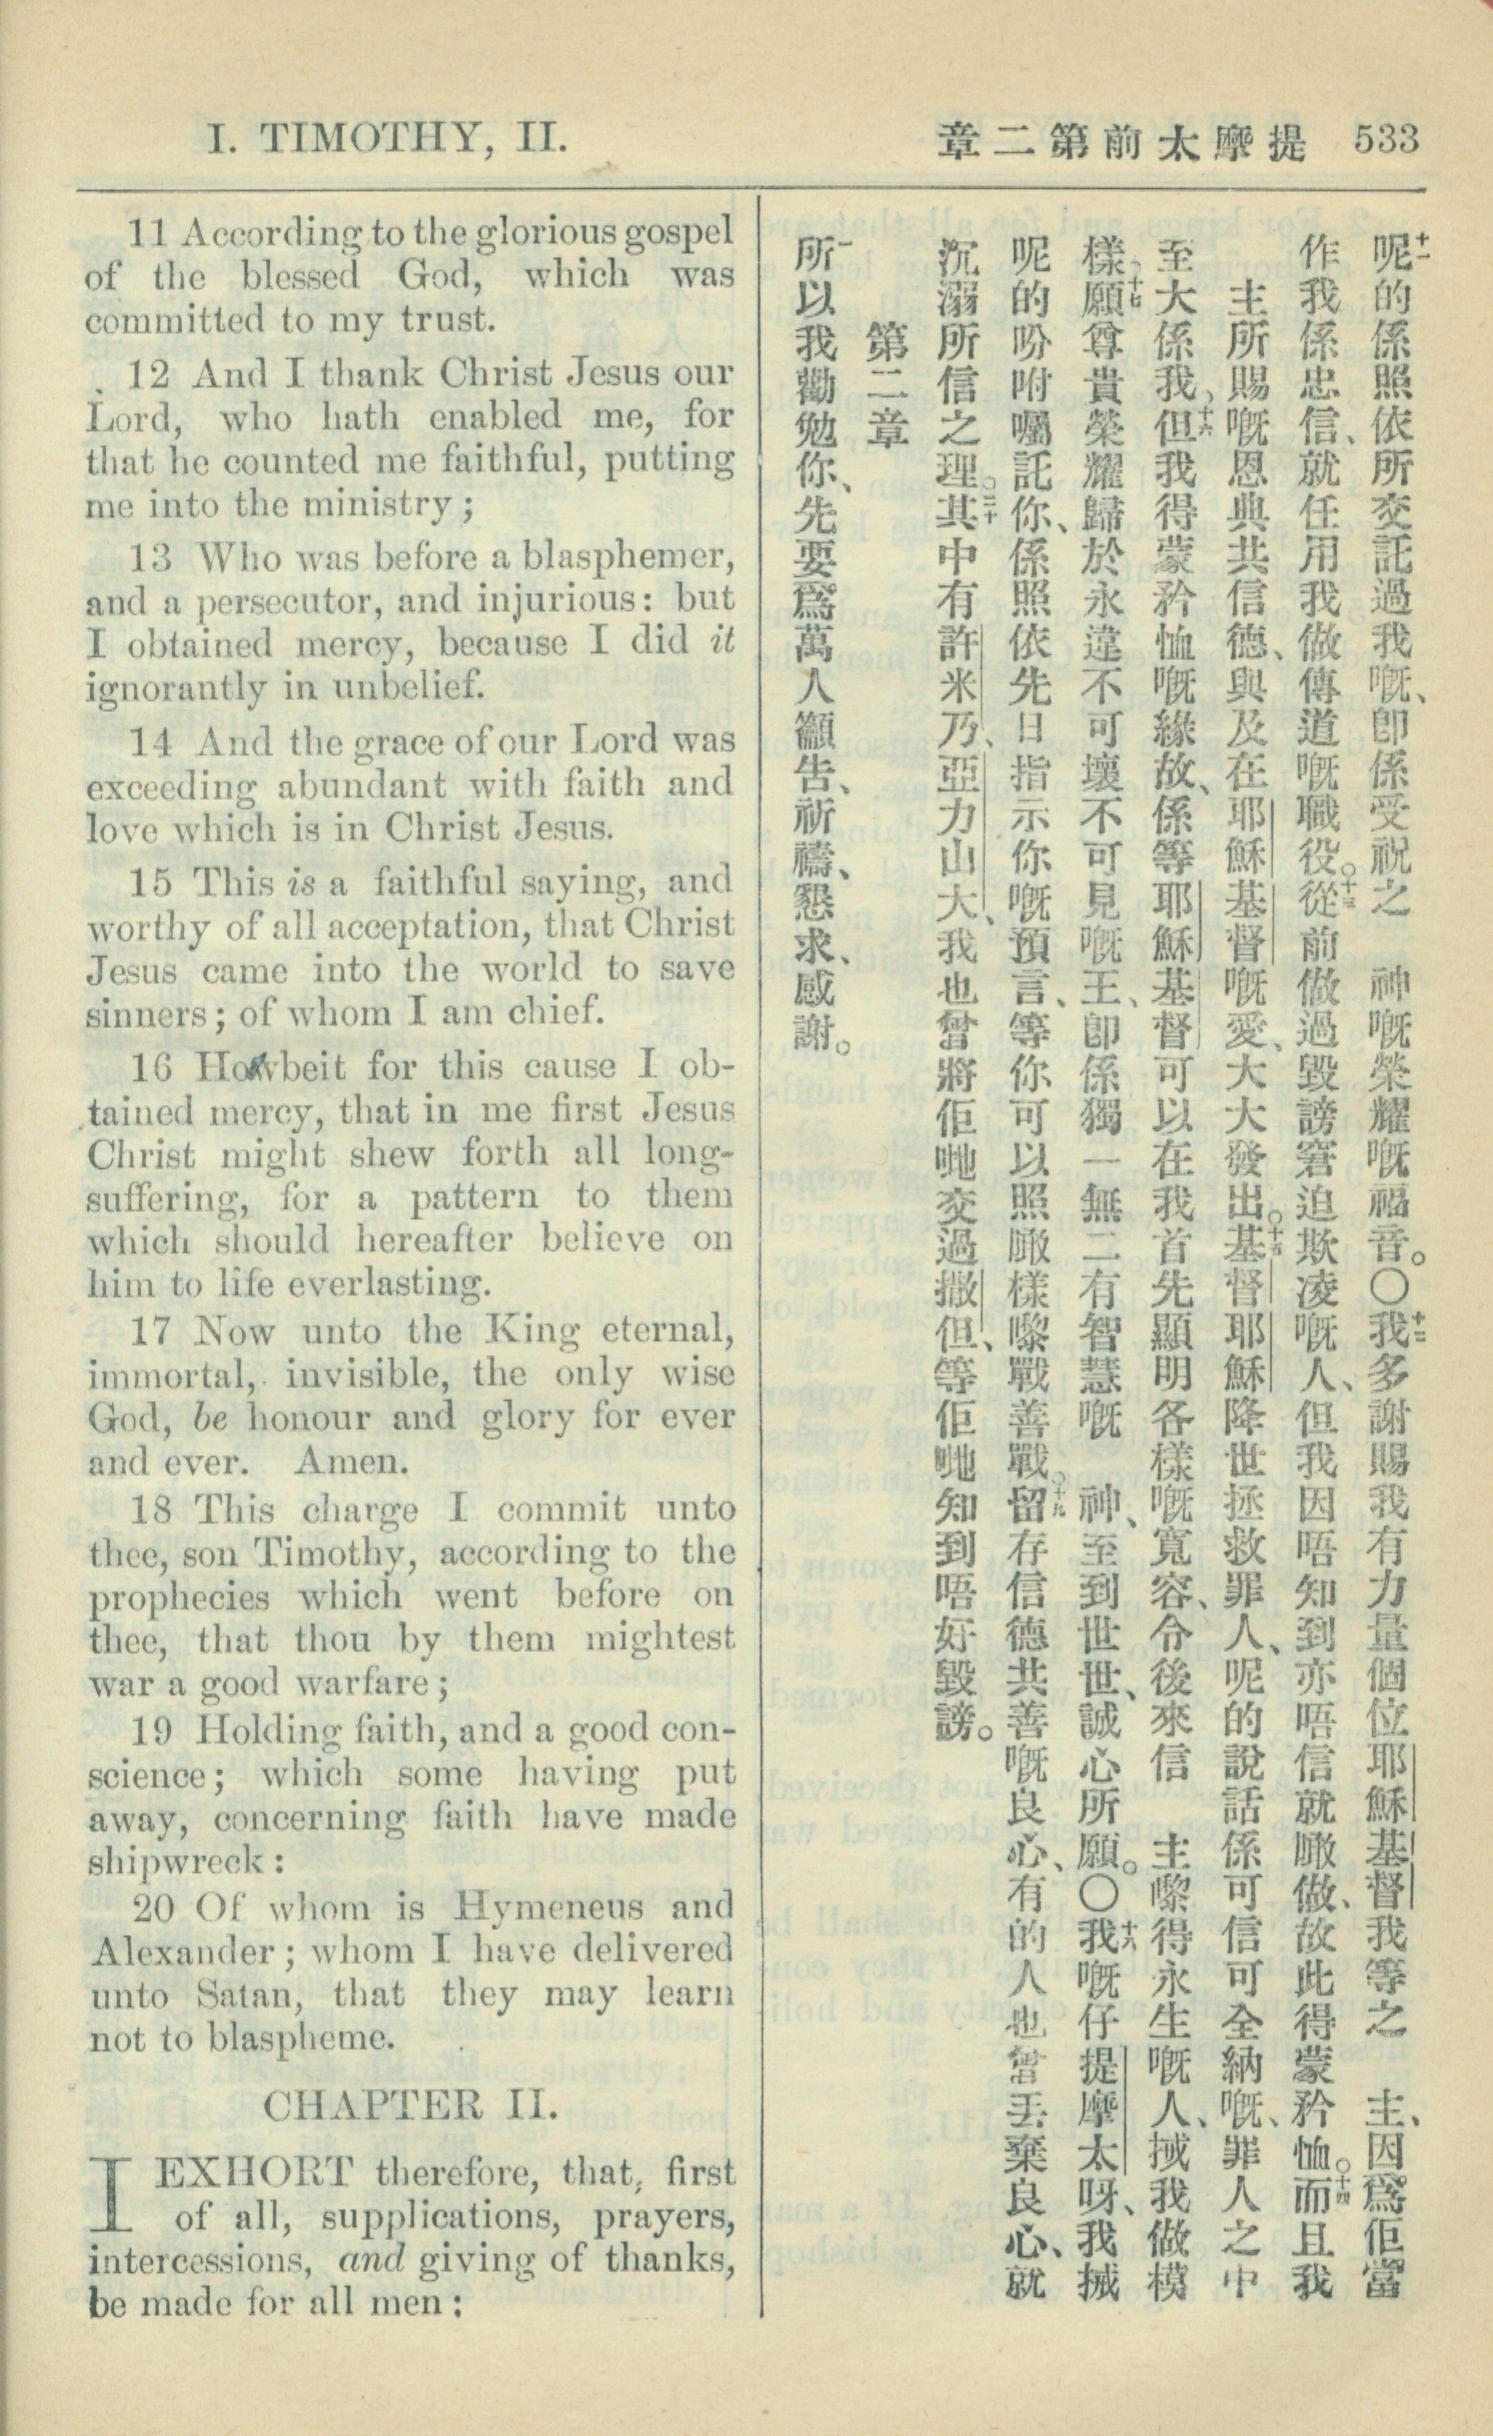 I. TIMOTHY, II.
章二第前太摩提 533
11 According to the glorious gospel
of the blessed God, which was
committed to my trust.
12 And I thank Christ Jesus our
Lord, who hath enabled me, for
that he counted me faithful, putting
me into the ministry;
13 Who was before a blasphemer,
and a persecutor, and injurious: but
I obtained mercy, because I did it
ignorantly in unbelief.
14 And the grace of our Lord was
exceeding abundant with faith and
love which is in Christ Jesus.
15 This is a faithful saying, and
worthy of all acceptation, that Christ
Jesus came into the world to save
sinners; of whom I am chief.
16 Howbeit for this cause I ob-
tained mercy, that in me first Jesus
Christ might shew forth all long-
suffering, for a pattern to them
which should hereafter believe on
him to life everlasting.
17 Now unto the King eternal,
immortal, invisible, the only wise
God, be honour and glory for ever
and ever. Amen.
18 This charge I commit unto
thee, son Timothy, according to the
prophecies which went before on
thee, that thou by them mightest
war a good warfare;
19 Holding faith, and a good con-
science; which some having put
away, concerning faith have made
shipwreck:
20 Of whom is Hymeneus and
Alexander; whom I have delivered
unto Satan, that they may learn
not to blaspheme.
CHAPTER II.
I EXHORT therefore, that, first
of all, supplications, prayers,
intercessions, and giving of thanks,
be made for all men;
十一呢的係照依所交託過我嘅、卽係受祝之 神嘅榮耀嘅福音。〇十二我多謝賜我有力量個位耶穌基督我等之 主、因爲佢當
作我係忠信、就任用我做傳道嘅職役。十三從前做過毀謗窘迫欺凌嘅人、但我因唔知到亦唔信就噉做、故此得蒙矜恤。十四而且我
主所賜嘅恩典共信德、與及在耶穌基督嘅愛、大大發出。十五基督耶穌降世拯救罪人、呢的說話係可信可全納嘅、罪人之中
至大係我、十六但我得蒙矜恤嘅緣故、係等耶穌基督可以在我首先顯明各樣嘅寬容、令後來信 主嚟得永生嘅人、𢬿我做模
樣。十七願尊貴榮耀歸於永遠不可壞不可見嘅王、卽係獨一無二有智慧嘅 神、至到世世、誠心所願。〇十八我嘅仔提摩太呀、我𢬿
呢的吩咐囑託你、係照依先日指示你嘅預言、等你可以照噉樣嚟戰善戰。十九留存信德共善嘅良心、有的人也曾丟棄良心、就
沉溺所信之理。二十其中有許米乃、亞力山大、我也曾將佢哋交過撒但、等佢哋知到唔好毀謗。
第二章
一所以我勸勉你、先要爲萬人籲告、祈禱、懇求、感謝。